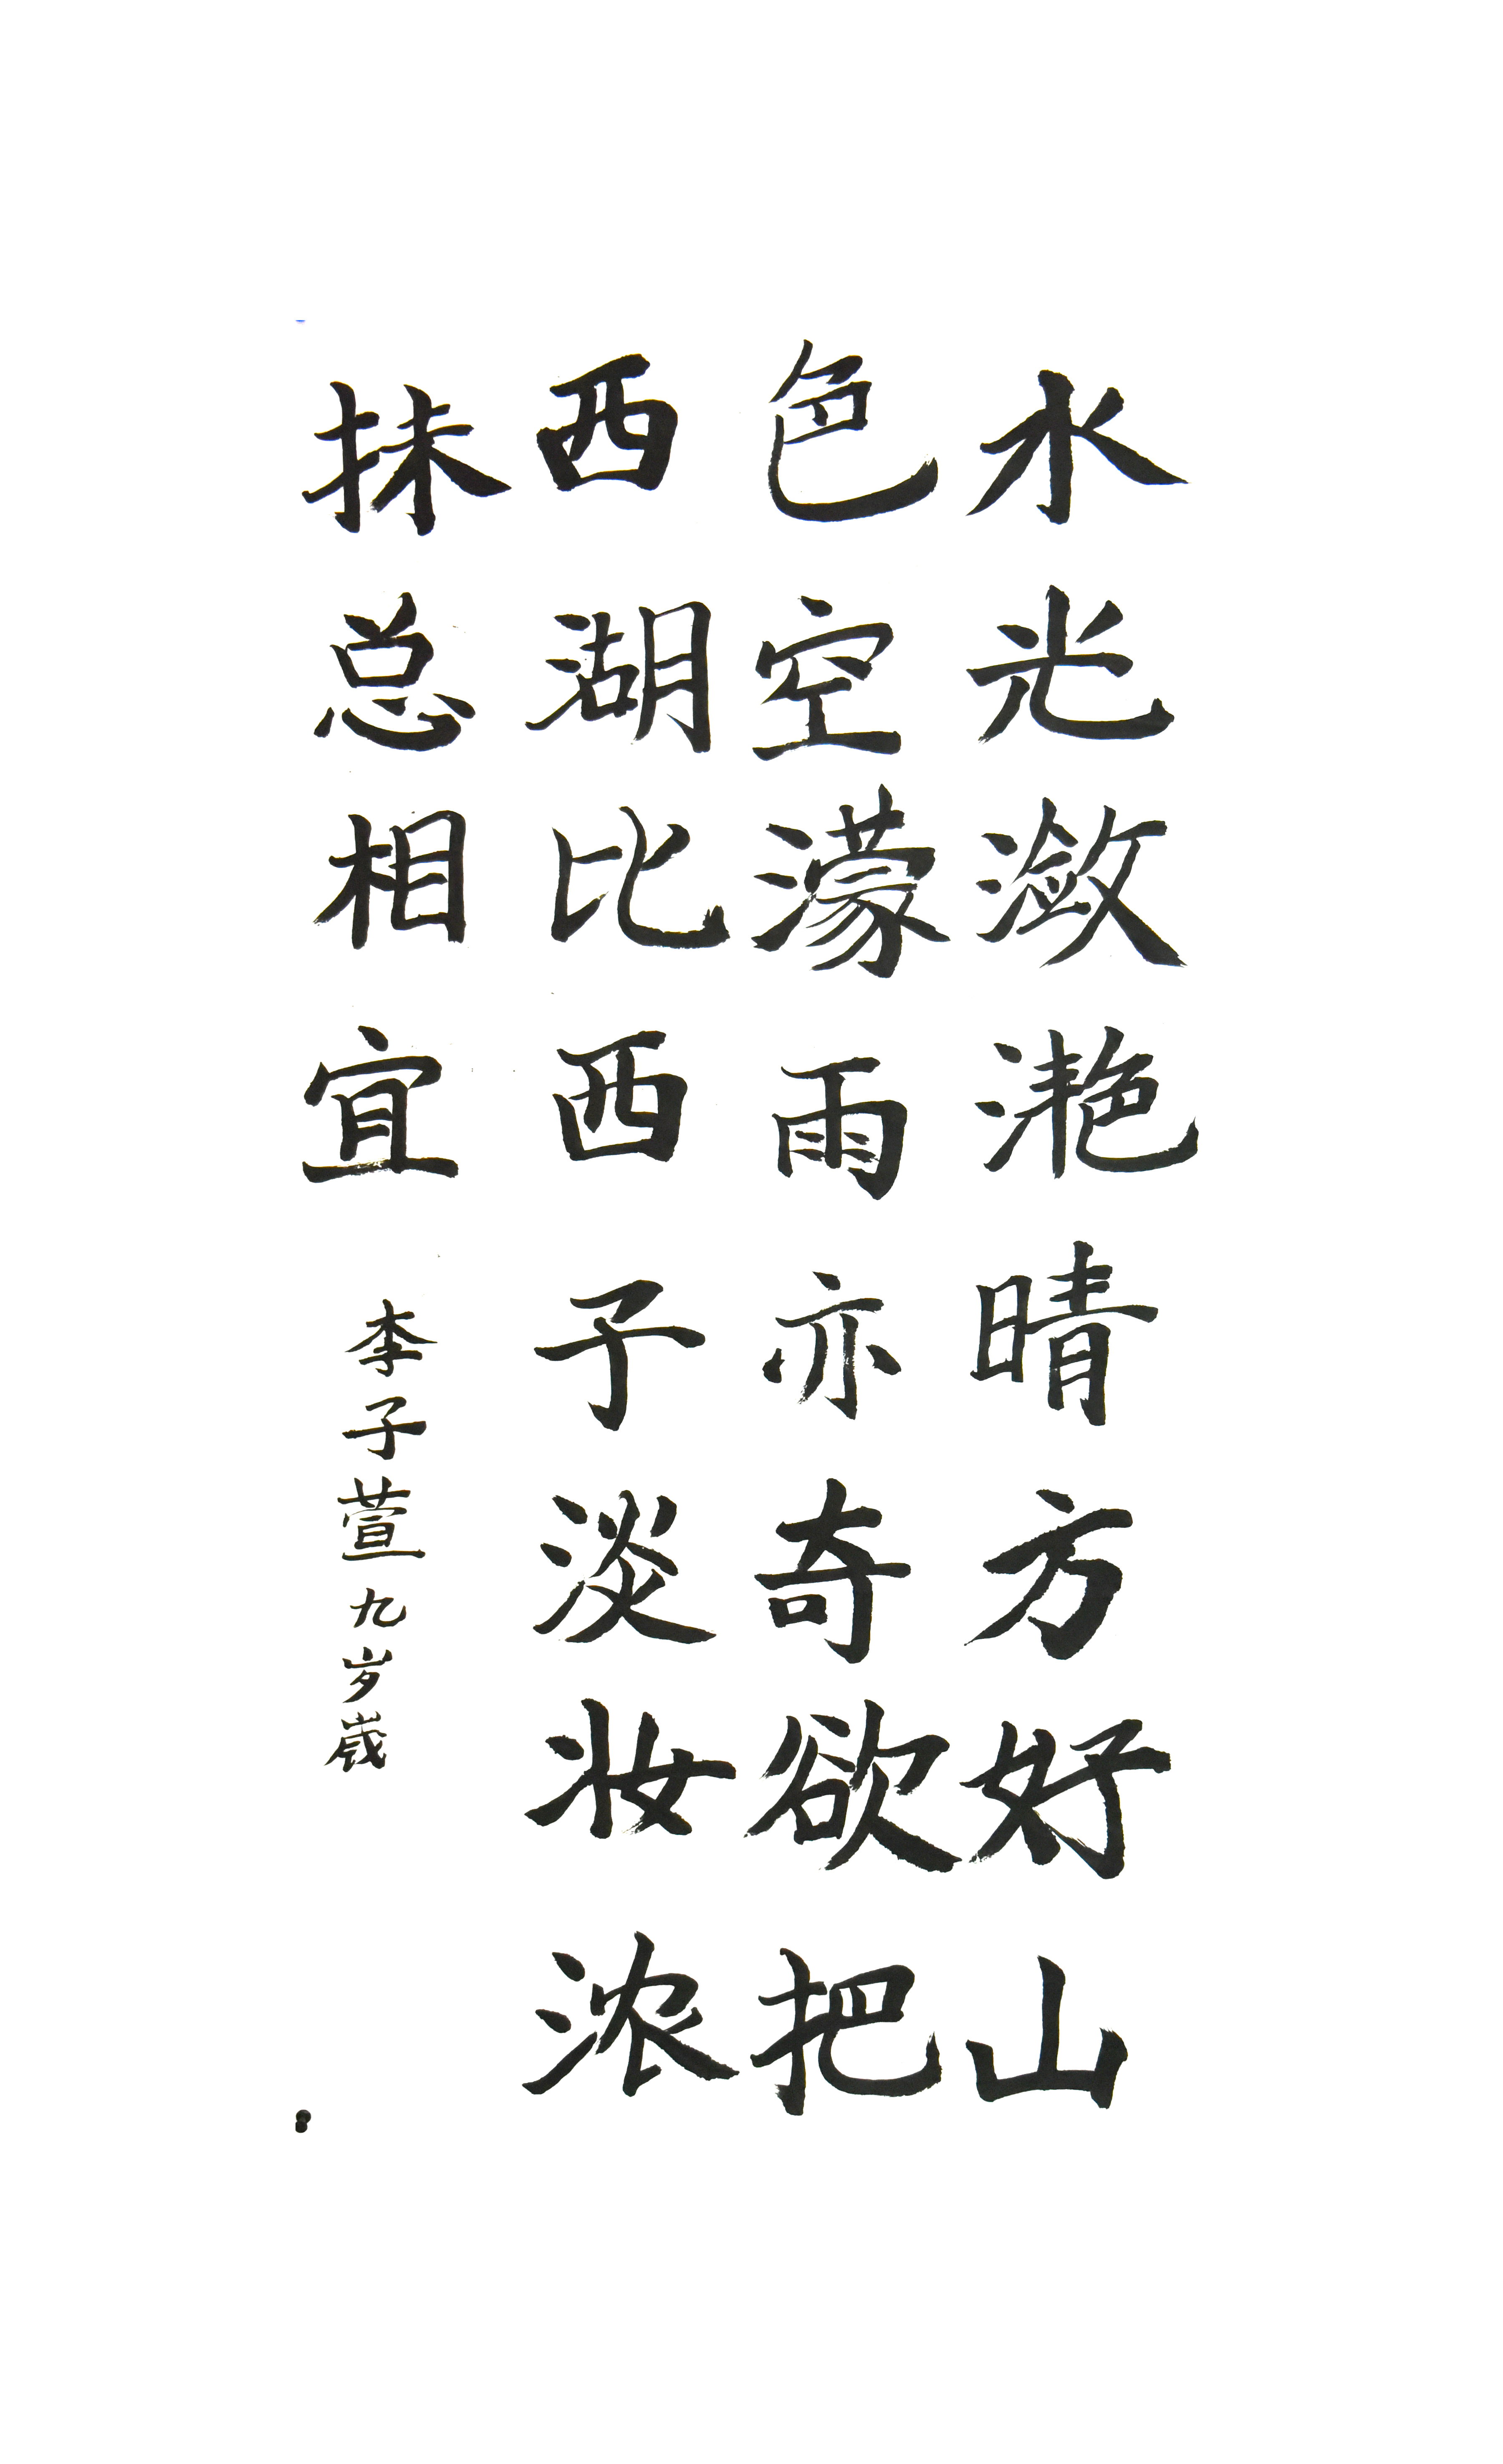 水光潋滟晴方好山
色空濛雨亦奇欲把
西湖比西子淡妆浓
抹总相宜
李子萱九岁